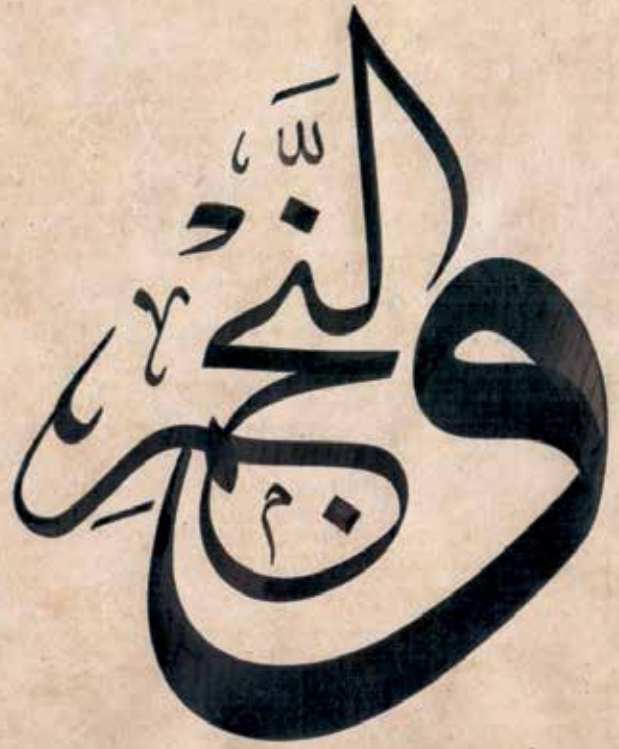 وَالنَّجْمِ